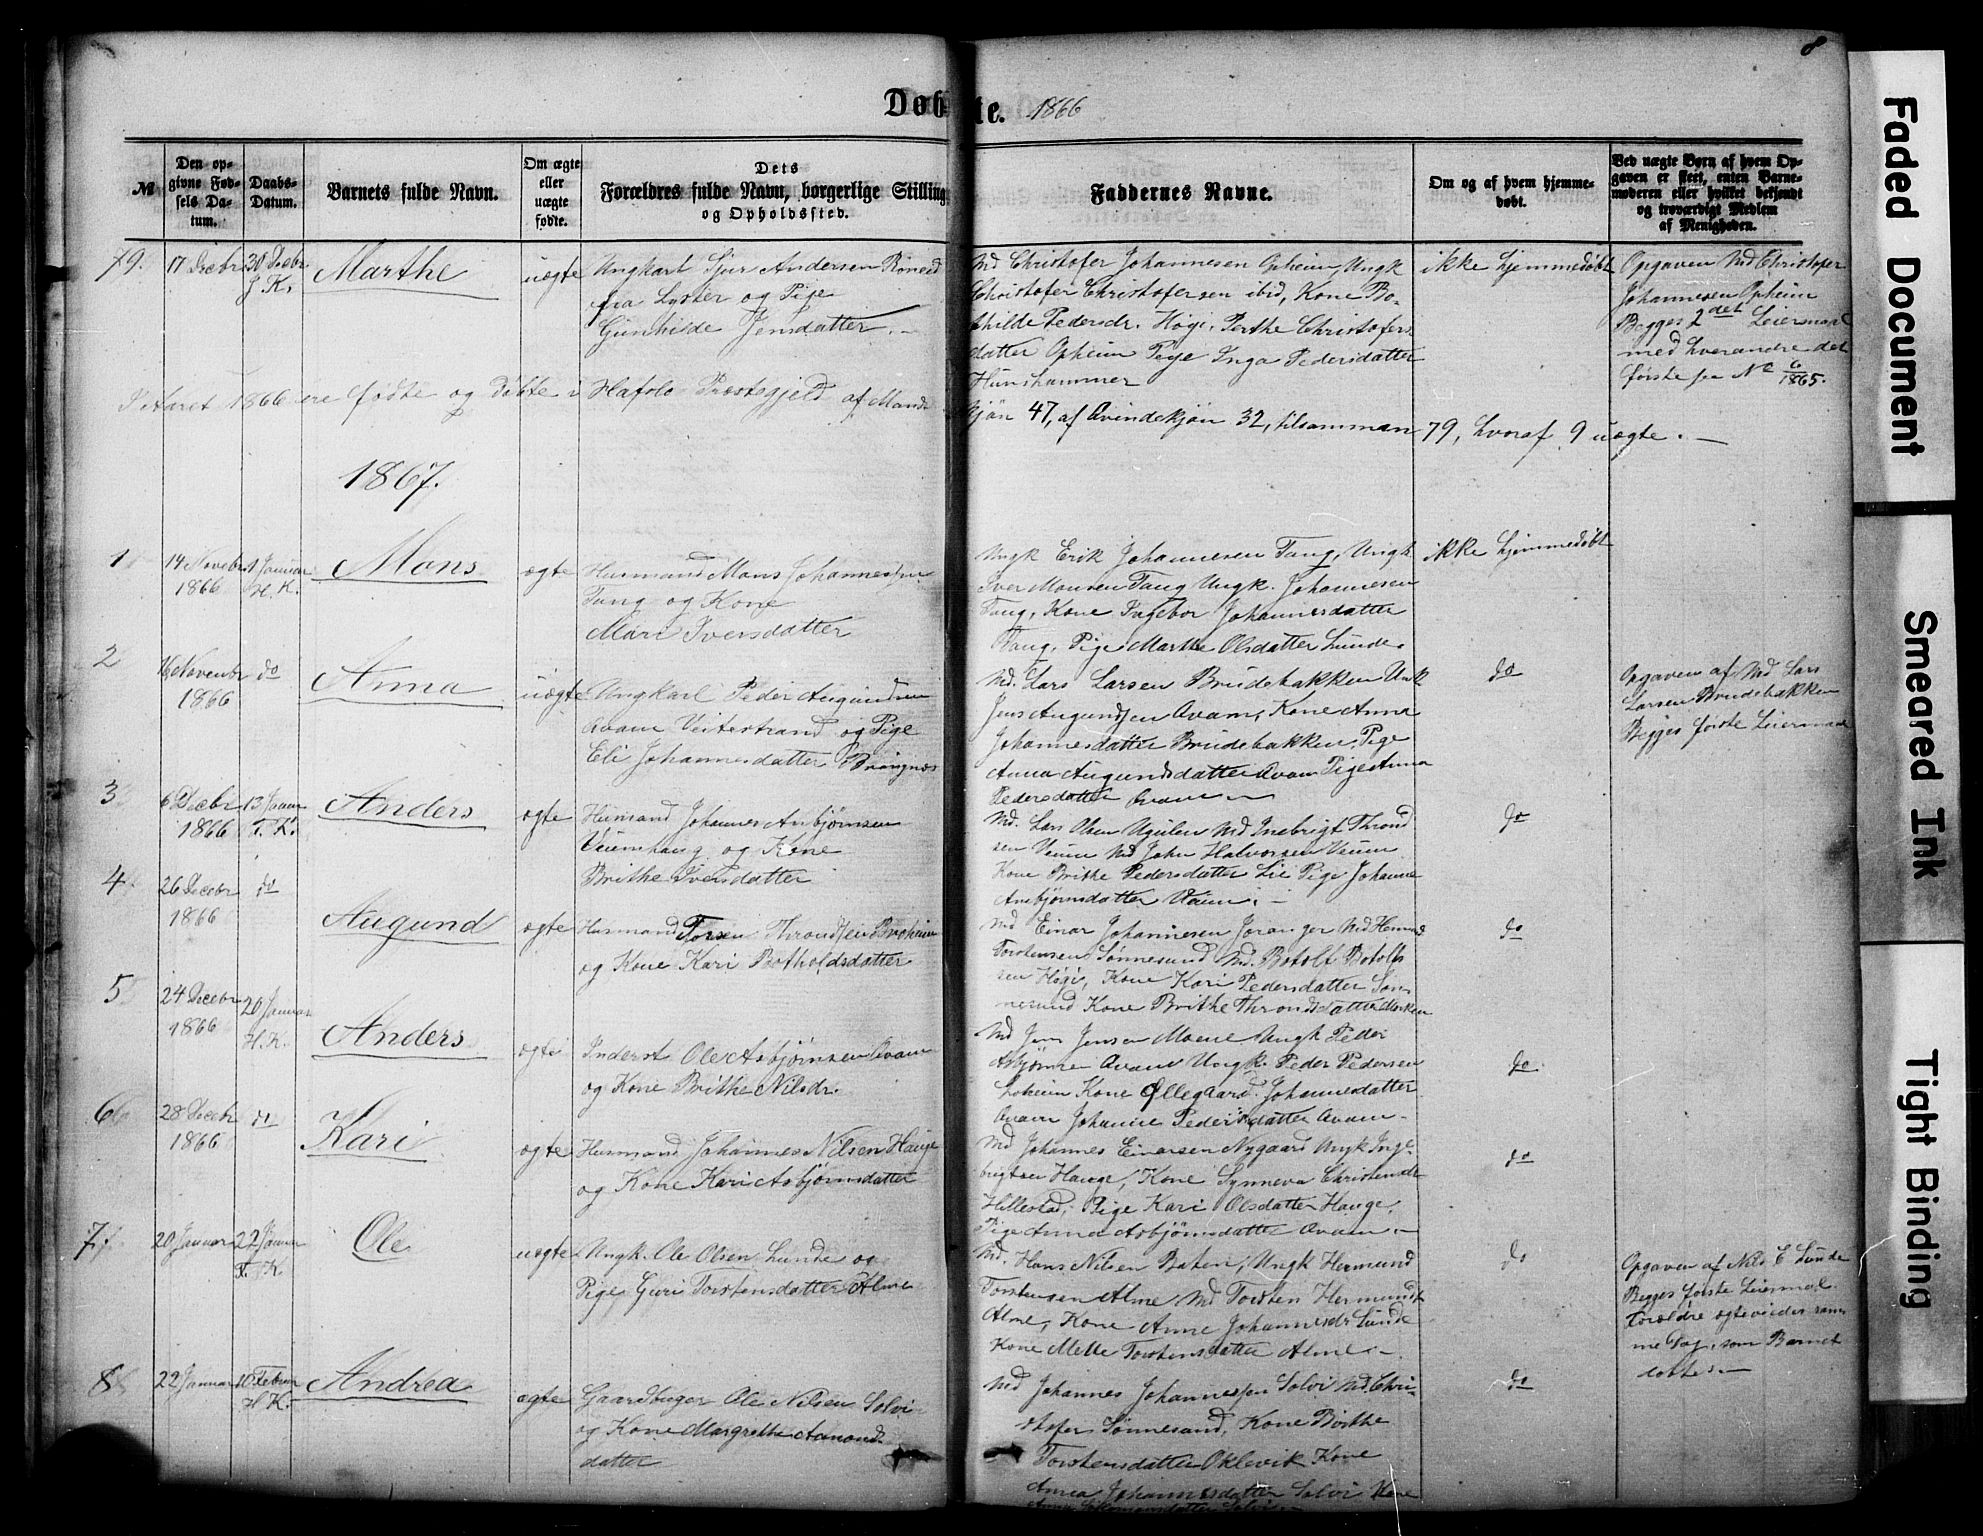 8
Døbte. 1866
№
Den opgivne Fødsels Datum.
Daabs-Datum.
Barnets fulde Navn.
Om ægte eller uægte fødte.
Dets Forældres fulde Navn, borgerlige Stilling og Opholdssted.
Faddernes Navne.
Om og af hvem hjemmedøbt.
Ved uægte Børn af hvem Opgaven er skeet, enten Barnemoderen eller hvilket bekjendt og troværdigt Medlem af Menigheden.
79.
17 Decbr
30 Decbr
J. K.
Marthe
uegte
Ungkarl Sjur Andersen
fra Lyster og Pige
Gunhilde Jensdatter.
Md Christofer Johannesen Opheim, Ungk
Christofer Christofersen ibid, Kone Bo-
thilde Pedersdr. Høgi, Berthe Christofers
datter Opheim Pige Inga Pedersdatter
Hunshammer
ikke hjemmedøbt
Opgaven Md Christofer
Johannesen Opheim
Begges 2det Leiermaal
med hverandre det
første se No 6/1865.
I Aaret 1866 ere fødte og døbte i Hafslo Præstegjeld af Mandkjøn 47, af Qvindekjøn 32, tilsammen 79, hvoraf 9 uægte. —
1867.
1
14 Novebr
1866
1 Januar
H. K.
Mons
egte
Husmand Mons Johannessen
Tang og Kone
Mari Iversdatter
Ungk Erik Johannesen Tang, Ungk
Iver Monsen Tang Ungk. Johannesen
Tang, Kone Ingebor Johannesdatter
Tang, Pige Marthe Olsdatter Lunde.
ikke hjemmedøbt
2
16 Novembr
1866
do
Anna
uegte
Ungkarl Peder Augundsen
Qvam Veitestrand og Pige
Eli Johannesdatter
Md. Lars Larsen Brudebakken Unk
Jens Augundsen Qvam, Kone Anna
Johannesdatter Brudebakken, Pige
Anna Augundsdatter Qvam Pige Anna
Pedersdatter Qvam —
do
Opgaven af Md Lars
Larsen Brudebakken
Begges første Leiermaal
3
6 Decbr
1866
13 Januar
F. K.
Anders
egte
Husmand Johannes Asbjørnsen
Veumhaug og Kone
Brithe Iversdatter
Md. Lars Olsen Ugulen Md Inebrigt Thrond
sen Veum Md John Halvorsen Veum
Kone Brithe Pedersdatter Lie Pige Johanne
Asbjørnsdatter Veum. —
do
4
26 Decbr
1866
do
Augund
egte
Husmand Throndsen
og Kone Kari Botholdsdatter
Md Einar Johannesen Joranger Md
Torstensen Sønnesund Md. Botolf Botolf
sen Høgi, Kone Kari Pedersdatter Søn-
nesund Kone Brithe Throndsdatter
do
5
24 Decebr
1866
20 Januar
H. K.
Anders
egte
Inderst Ole Asbjørnsen Qvam
og Kone Brithe Nilsdr.
Md Jens Jensen Moene Ungk Peder
Asbjørnsen Qvam Ungk. Peder Pedersen
Kone Øllegaard Johannesdatter
Qvam Johanne Pedersdatter Qvam —
do
6
28 Decebr
1866
do
Kari
egte
Husmand Johannes Nilsen Hauge
og Kone Kari Asbjørnsdatter
Md Johannes Einarsen Nygaard Ungk Inge-
brigtsen Hauge, Kone Synneva Christensdr
Hillestad, Pige Kari Olsdatter Hauge,
Pige Anna Asbjørnsdatter Qvam. —
do
7
20 Januar
22 Januar
F. K
Ole
uegte
Ungk. Ole Olsen Lunde og
Pige Guri Torstensdatter Alme
Md. Hans Nilsen Ungk Hermund
Torstensen Alme Md Torsten Hermunds
Alme, Kone Anne Johannesdr Lunde
Kone Mette Torstensdatter Alme. —
do
Opgaven af Nils E Lunde
Begges første Leiermal
Foreldre egtevieder sam-
me Dag, som Barnet
døbtes —
8
22 Januar
10 Februar
H. K.
Andrea
egte
Gaardbruger Ole Nilsen Solvi
og Kone Margrethe Amonds
datter
Md Johannes Johannessen Solvi Md. Chri-
stofer Sønnesand, Kone Brithe
Torstensdatter Oklevik Kone
Anna Johannesdatter Solvi Kone
do
Faded Document
Smeared Ink
Tight Binding